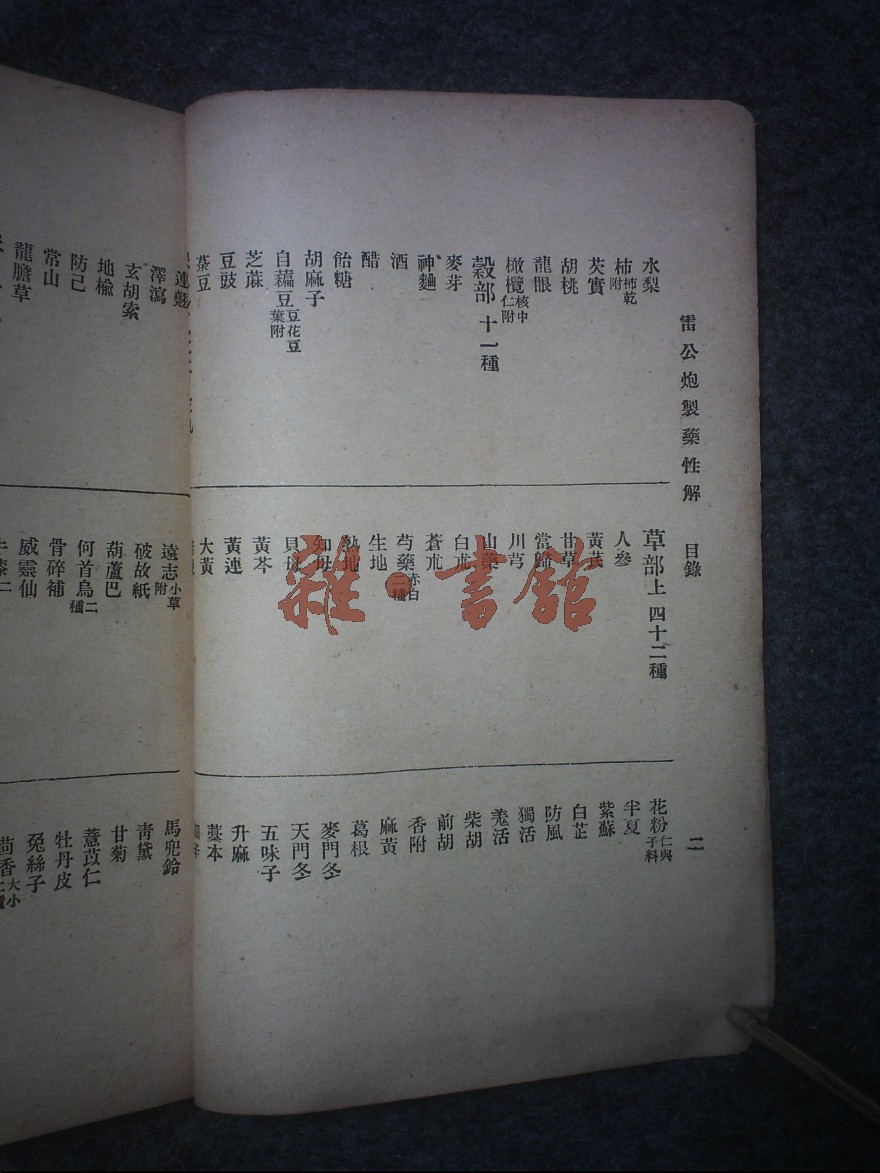 雷公炮製藥性解 目錄 二
水梨
柿 柿乾附
芡實
胡桃
龍眼
橄欖 核中仁附
穀部 十一種
麥芽
神麯
酒
醋
飴糖
胡麻子
白藊豆 豆花豆葉附
芝蔴
豆豉
菉豆
草部上 四十二種
人參
黃芪
甘草
當歸
川芎
山藥
白朮
蒼朮
芍藥 赤白二種
生地
熟地
知母
貝母
黃芩
黃連
大黃
花粉 仁與子料
半夏
紫蘇
白芷
防風
獨活
羌活
柴胡
前胡
香附
麻黃
葛根
麥門冬
天門冬
五味子
升麻
藁本
連翹
澤瀉
玄胡索
地榆
防己
常山
龍膽草
遠志 小草附
破故紙
葫蘆巴
何首烏 二種
骨碎補
威靈仙
馬兜鈴
青黛
甘菊
薏苡仁
牡丹皮
兔絲子
茴香 大小二種
雜·書館